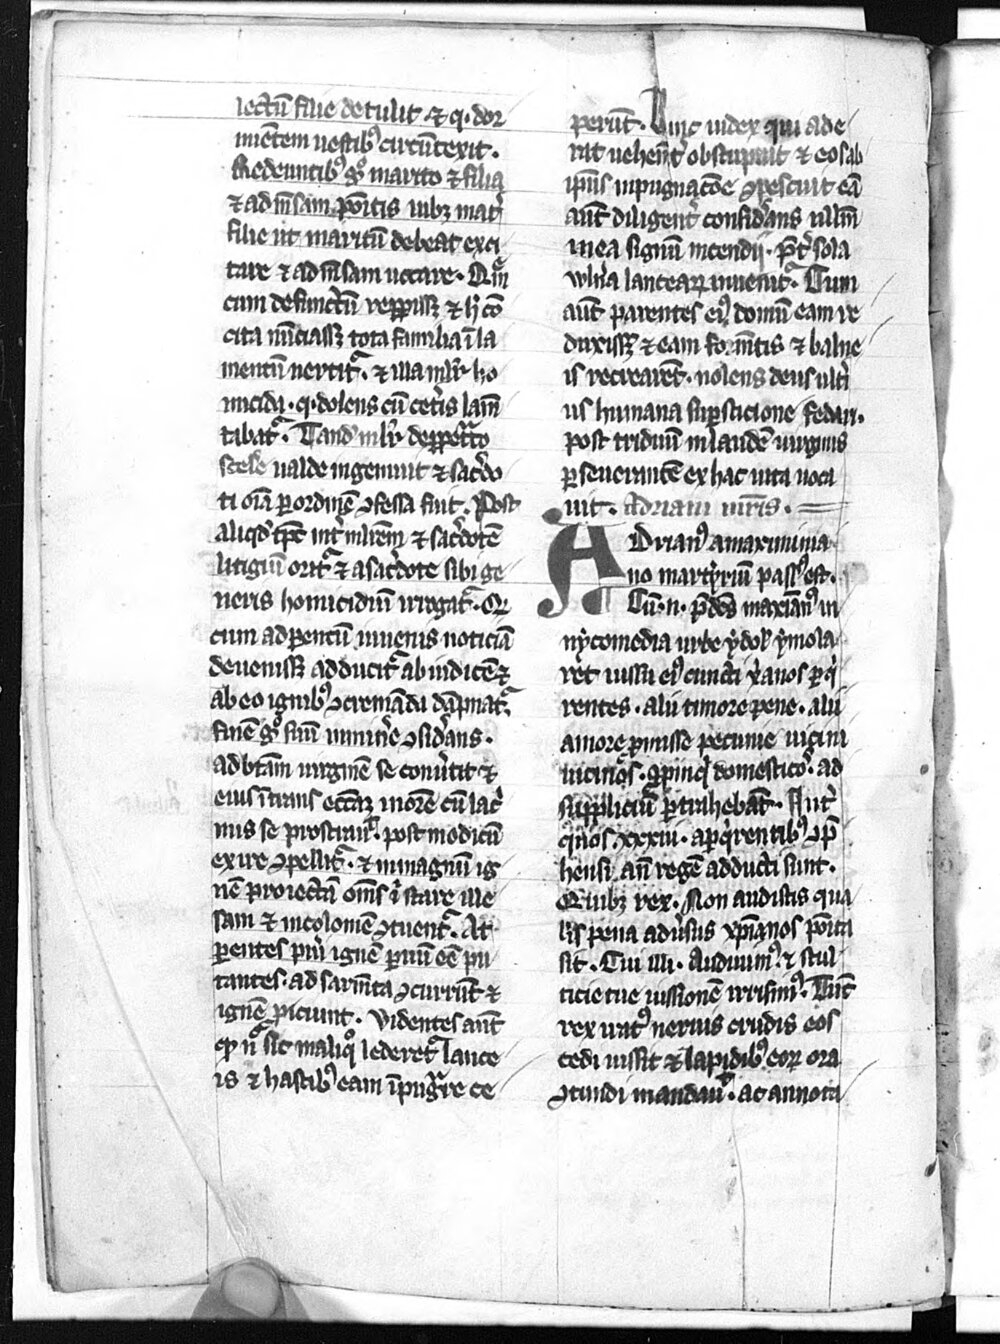 lectū filie detulit ⁊ q̇. dor
miētem uestib⁹ circūtexit.
Redeuntib⁹ g̊ marito ⁊ filia
⁊ ad m̄sam po̅itis iubꝫ mat̉
filie ut maritū debeat exci
tare ⁊ ad m̄sam uocare. Q̅m
cum defunctū rep̱p̱issꝫ ⁊ h̄ cō
cita nūciassꝫ tota familia ī la
mentū uertit̃. ⁊ illa ml̅r ho
micida. q̇. dolens cū cet̉is lam̅
tabat̃. Tand̅ ml̅r de ꝑpet̃to
scele̅ ualde ingemuit ⁊ sac̉do
ti oīa ꝑ ordinē ꝯfessa fuit. Post
aliqd̅ tp̅c int̉ ml̅rem ⁊ sac̉dotē
litigiū orit̃ ⁊ a sac̉dote sibi ge
neris homicidiū irrogat̃. Q̅
cum ad ꝑentū iuuenis noticiā
deuenissꝫ adducit̃ ab iudicē ⁊
ab eo ignib⁹ ꝯcremādi dāpnat̃.
finē g̊ suū iminē̉e ꝯsid̉ans.
ad bt̅am uirginē se conủtit ⁊
eius ītrans ecc̅am morē cū lac̉
mis se prostrauit. post modicū
exire ꝯpellit̃. ⁊ in magnū ig
nē proiectā om̅s ī stare ille
sam ⁊ incolomē ꝯtuent̃. At
ꝑentes pui̅ ignē ꝑuū eē pu
tantes. ad sarm̅ta ꝯcurrūt ⁊
ignē ꝓiciunt. Videntes aut̅
qp n̅ sic in aliq̊ lederet̃ lance
is ⁊ hastib⁹ eam īpug̃re ce
perūt. Tunc iudex qui ade
rat uehent̉ obstupuit ⁊ eos ab
ipi̅us inpugnac̅oe ꝯpescuit eā
aut̅ diligent̉ consid̉ans ullm̅
in ea signū incendij. p̅t̉ sola
uuln̉a lanceaꝝ inuenit. Cum
aut̅ parentes ei⁹ domū eam re
duxissꝫ ⁊ eam fom̅tis ⁊ balne
is recrearēt. nolens deus ult̉i
us humana suspicione fedari.
post triduū in laudē uirginis
ꝑseuerantē ex hac uita uoca
uit. Adriani mr̅is.
Adrian⁹ a maximinia
no martyriū pass⁹ est.
Cū. n. p̅d̅cs maxiān⁹ in
nycomedia urbe ydol̅ ymola
ret iussu ei⁹ cuncti x̅anos ꝑq̇
rentes. alij timore pene. alij
amore ꝓmisse pecunie uicini
uicinos. ꝓpinq̇ domestico̅. ad
suppliciū ꝑtrahebāt. Int̉
quos .xxxiii. a ꝑq̇rentib⁹ ꝯp̅
hensi an̅ regē adducti sunt.
Quibꝫ rex. Non audistis qua
lis pena adủsus xp̅ianos po̅ita
sit. Cui illi. Audiuim⁹. ⁊ stul
ticie tue iussionē irrisim⁹. Tūc
rex irat⁹ neruis crudis eos
cedi iussit ⁊ lapidib⁹ eoꝝ ora
ꝯtundi mandauit. ac annota